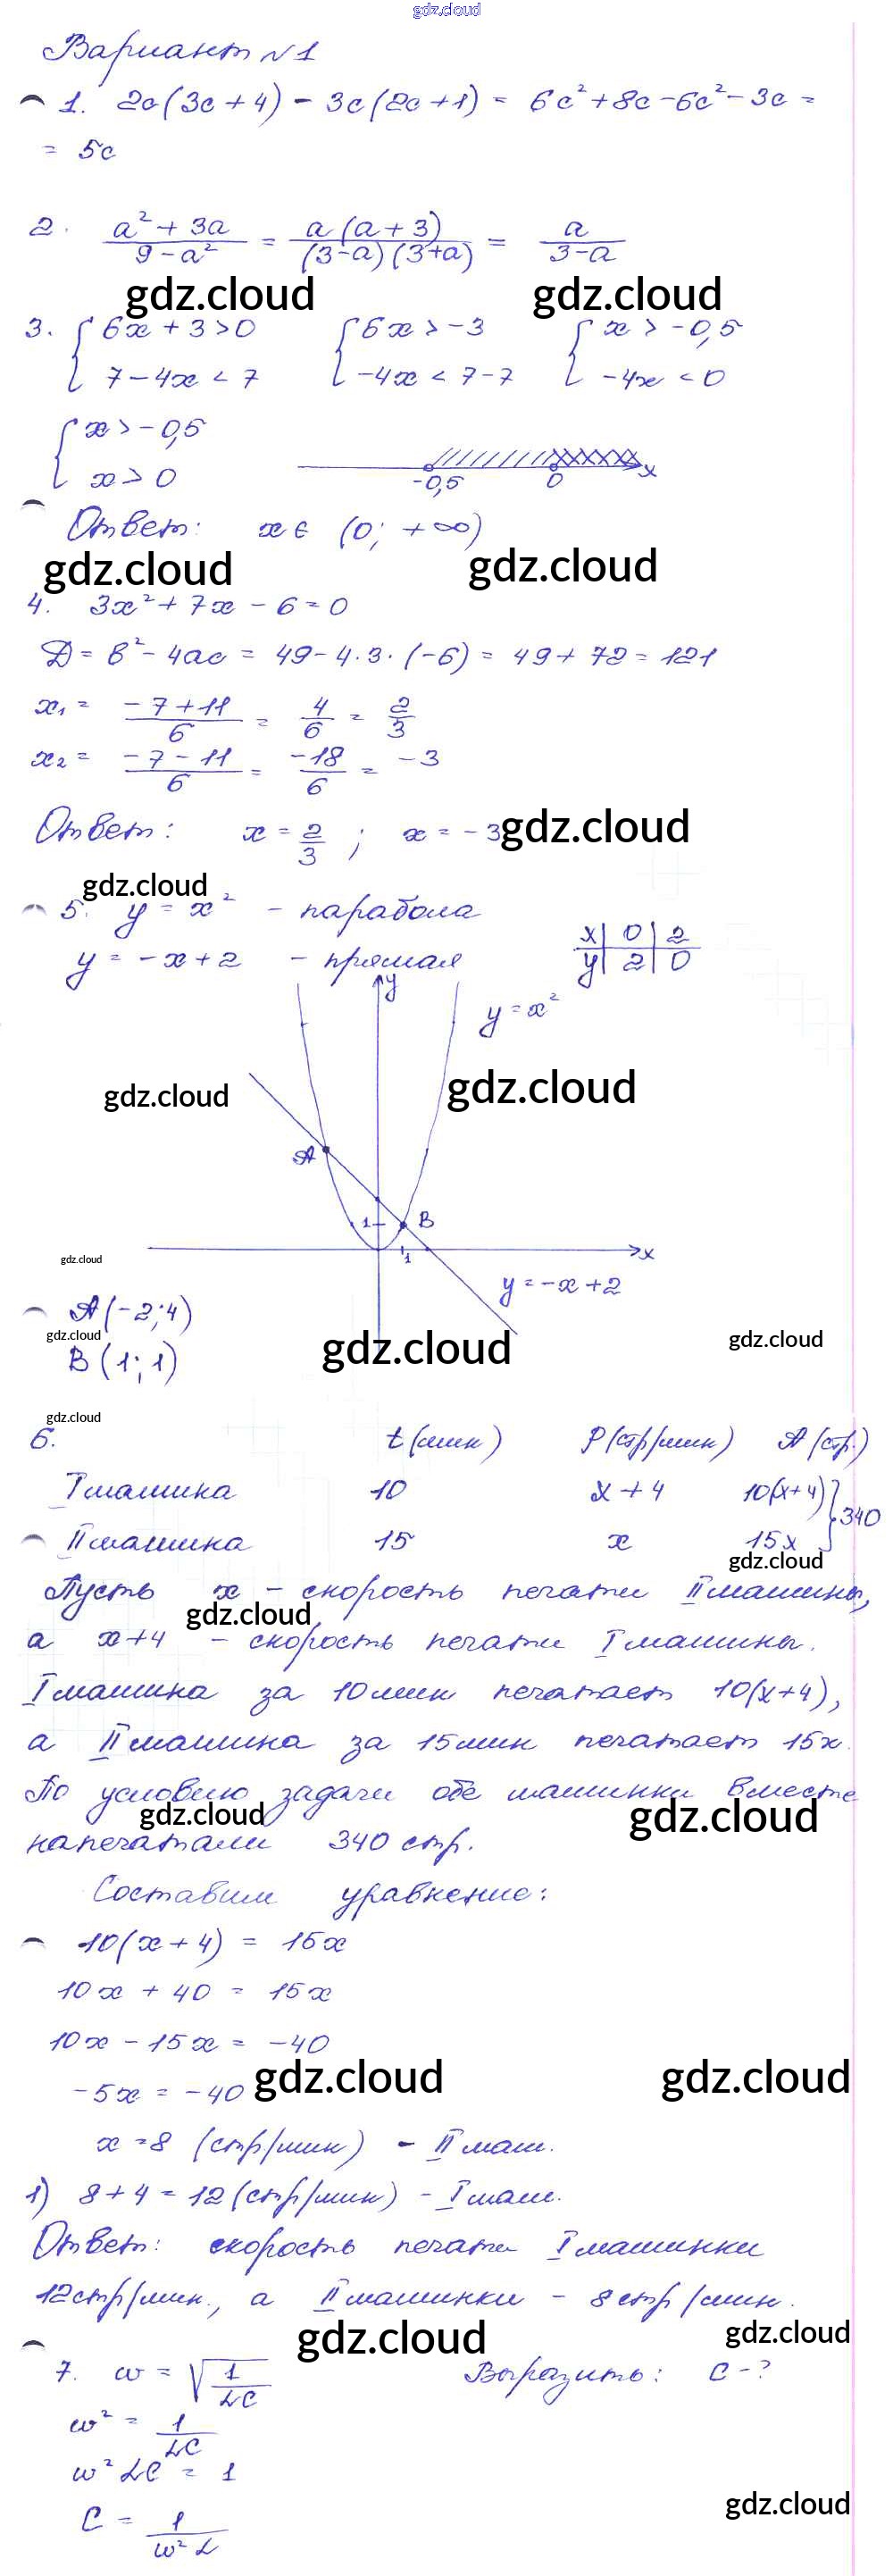 gdz.cloud
Вариант №1
1. 2c(3c+4) - 3c(2c+1) = 6c²+8c-6c²-3c =
= 5c
2. (a²+3a)/(9-a²) = (a(a+3))/((3-a)(3+a)) = a/(3-a)
gdz.cloud gdz.cloud
3. { 6x+3>0 { 6x>-3 { x>-0,5
7-4x<7 -4x<7-7 -4x<0
{ x>-0,5
x>0 -0,5 0 x
Ответ: x∈ (0; +∞)
gdz.cloud gdz.cloud
4. 3x²+7x-6=0
D = b²-4ac = 49-4·3·(-6) = 49+72 = 121
x₁ = (-7+11)/6 = 4/6 = 2/3
x₂ = (-7-11)/6 = -18/6 = -3
Ответ: x = 2/3 ; x = -3 gdz.cloud
gdz.cloud
5. y = x² - парабола
y = -x+2 - прямая
x | 0 | 2
y | 2 | 0
y
y=x²
gdz.cloud gdz.cloud
A
1 B
gdz.cloud 1 x
y=-x+2
A(-2;4)
gdz.cloud gdz.cloud gdz.cloud
B(1;1)
gdz.cloud
6. t(мин) P(стр/мин) A(стр.)
I машина 10 x+4 10(x+4) } 340
II машина 15 x 15x
gdz.cloud
Пусть x - скорость печати II машины,
gdz.cloud
а x+4 - скорость печати I машины.
I машина за 10мин печатает 10(x+4),
а II машина за 15мин печатает 15x.
По условию задачи обе машинки вместе
gdz.cloud gdz.cloud
напечатали 340 стр.
Составим уравнение:
10(x+4) = 15x
10x + 40 = 15x
10x - 15x = -40
-5x = -40 gdz.cloud gdz.cloud
x=8 (стр/мин) - II маш.
1) 8+4=12(стр/мин) - I маш.
Ответ: скорость печати I машинки
12стр/мин., а II машинки - 8стр/мин.
gdz.cloud gdz.cloud
7. w = √(1/LC) Выразить: C-?
w² = 1/LC
w²LC = 1
gdz.cloud
C = 1/(w²L)